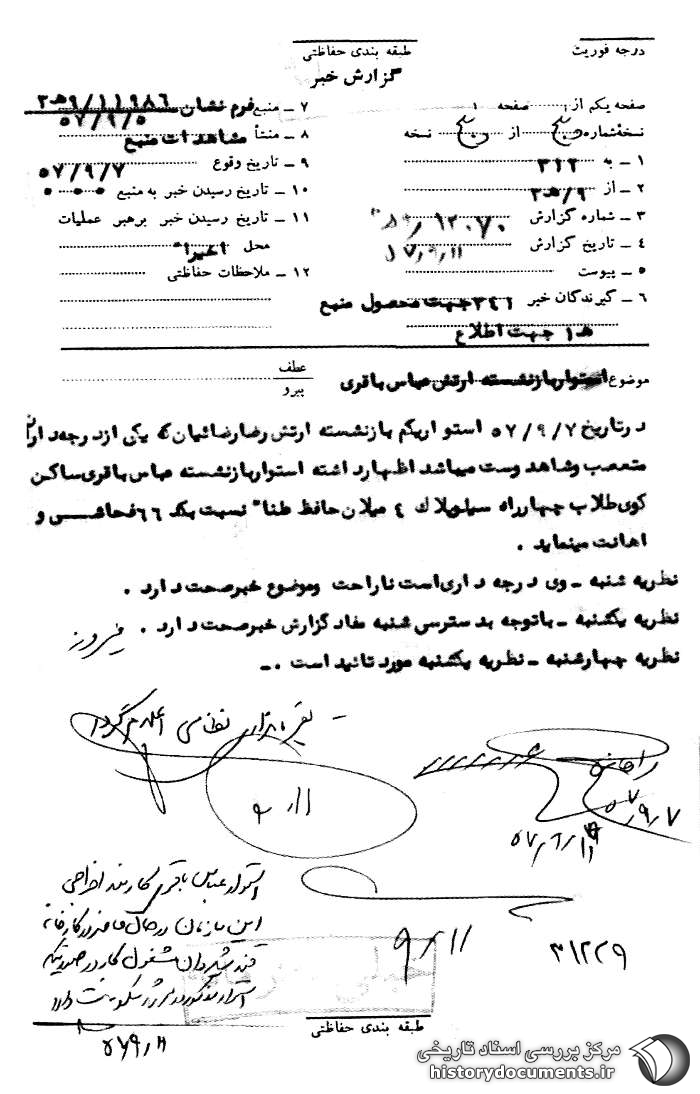 درجه فوریت
طبقه بندی حفاظتی
گزارش خبر
صفحه یکم از ۱ صفحه
نسخه شماره از نسخه
۱ ــ به ۳۱۲
۲ ــ از ۹/ه‍ ۳
۳ ــ شماره گزارش ۱۲۰۷۰
۴ ــ تاریخ گزارش ۵۷/۹/۱۱
۵ ــ پیوست
۶ ــ گیرندگان خبر ۳۴۱ جهت محصول منبع
ه‍ ۱ جهت اطلاع
۷ ــ منبع فرم نشان ۱۱۹۸۶/۹ه‍ ۳
۵۷/۹/۵
۸ ــ منشأ مشاهدات منبع
۹ ــ تاریخ وقوع ۵۷/۹/۷
۱۰ ــ تاریخ رسیدن خبر به منبع
۱۱ ــ تاریخ رسیدن خبر برهبر عملیات
محل اخیرا"
۱۲ ــ ملاحظات حفاظتی
عطف
پیرو
موضوع استوار بازنشسته ارتش عباس باقری
در تاریخ ۵۷/۹/۷ استوار یکم بازنشسته ارتش رضا رضائیان که یکی از درجه داران
متعصب و شاهدوست میباشد اظهار داشته استوار بازنشسته عباس باقری ساکن
کوی طلاب چهارراه سیلو پلاک ۴ میلان حافظ نسبت به کد ۶۶ فحاشی و
اهانت مینماید .
نظریه شنبه ــ وی درجه داری است ناراحت و موضوع خبر صحت دارد .
نظریه یکشنبه ــ با توجه به دسترسی شنبه مفاد گزارش خبر صحت دارد . فیروز
نظریه چهارشنبه ــ نظریه یکشنبه مورد تائید است . ــ
نظامی اعلام گردد
۹/۱۱
۵۷/۹/۷
۵۷/۹/۱۱
استوار عباس باقری کارمند اخراجی
این سازمان در حال حاضر در کارخانه
قند شیروان مشغول کار در صورتیکه
استوار مذکور در سکونت دارد
۹/۱۱
۹/۱۱
۳۱۲۲۹
طبقه بندی حفاظتی
مرکز بررسی اسناد تاریخی
historydocuments.ir